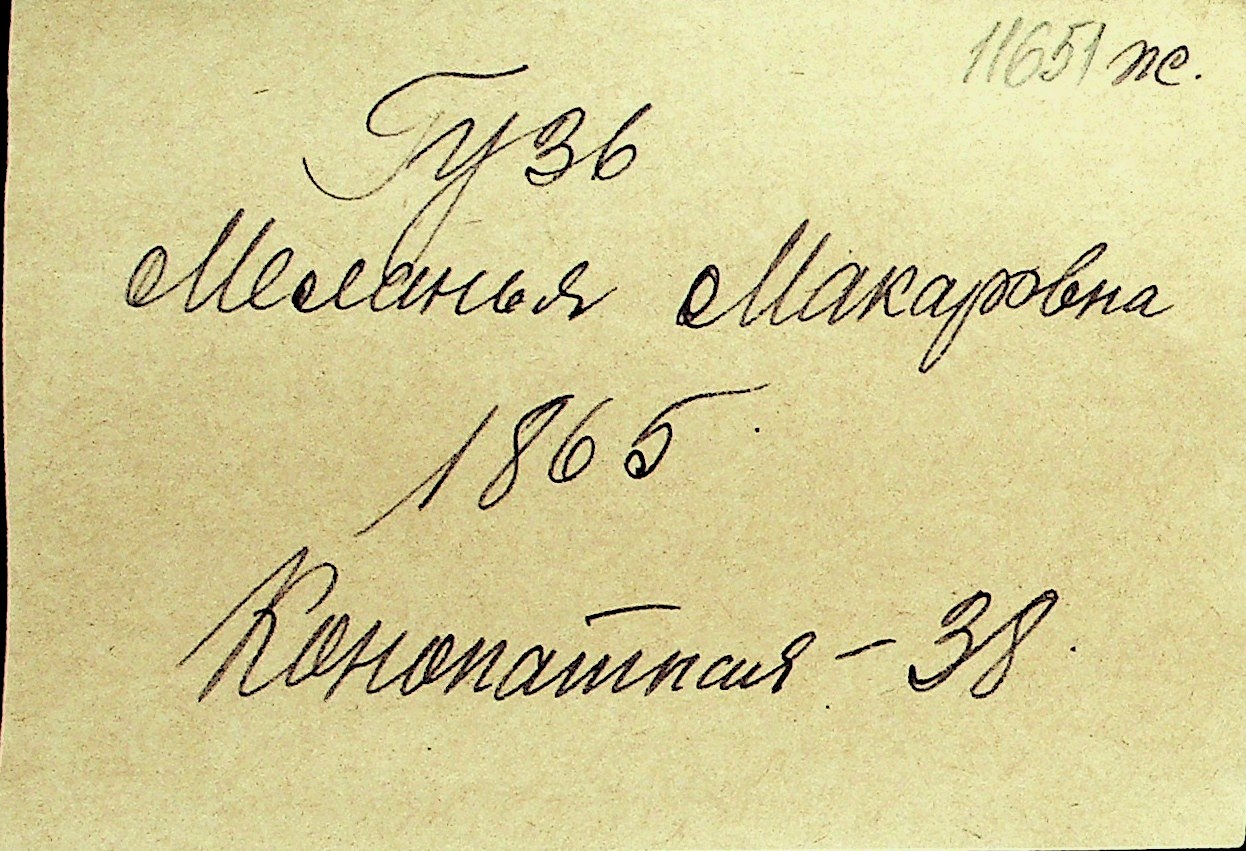 11651 ж.
Гузь
Меланья Макаровна
1865
Конопатная - 38.